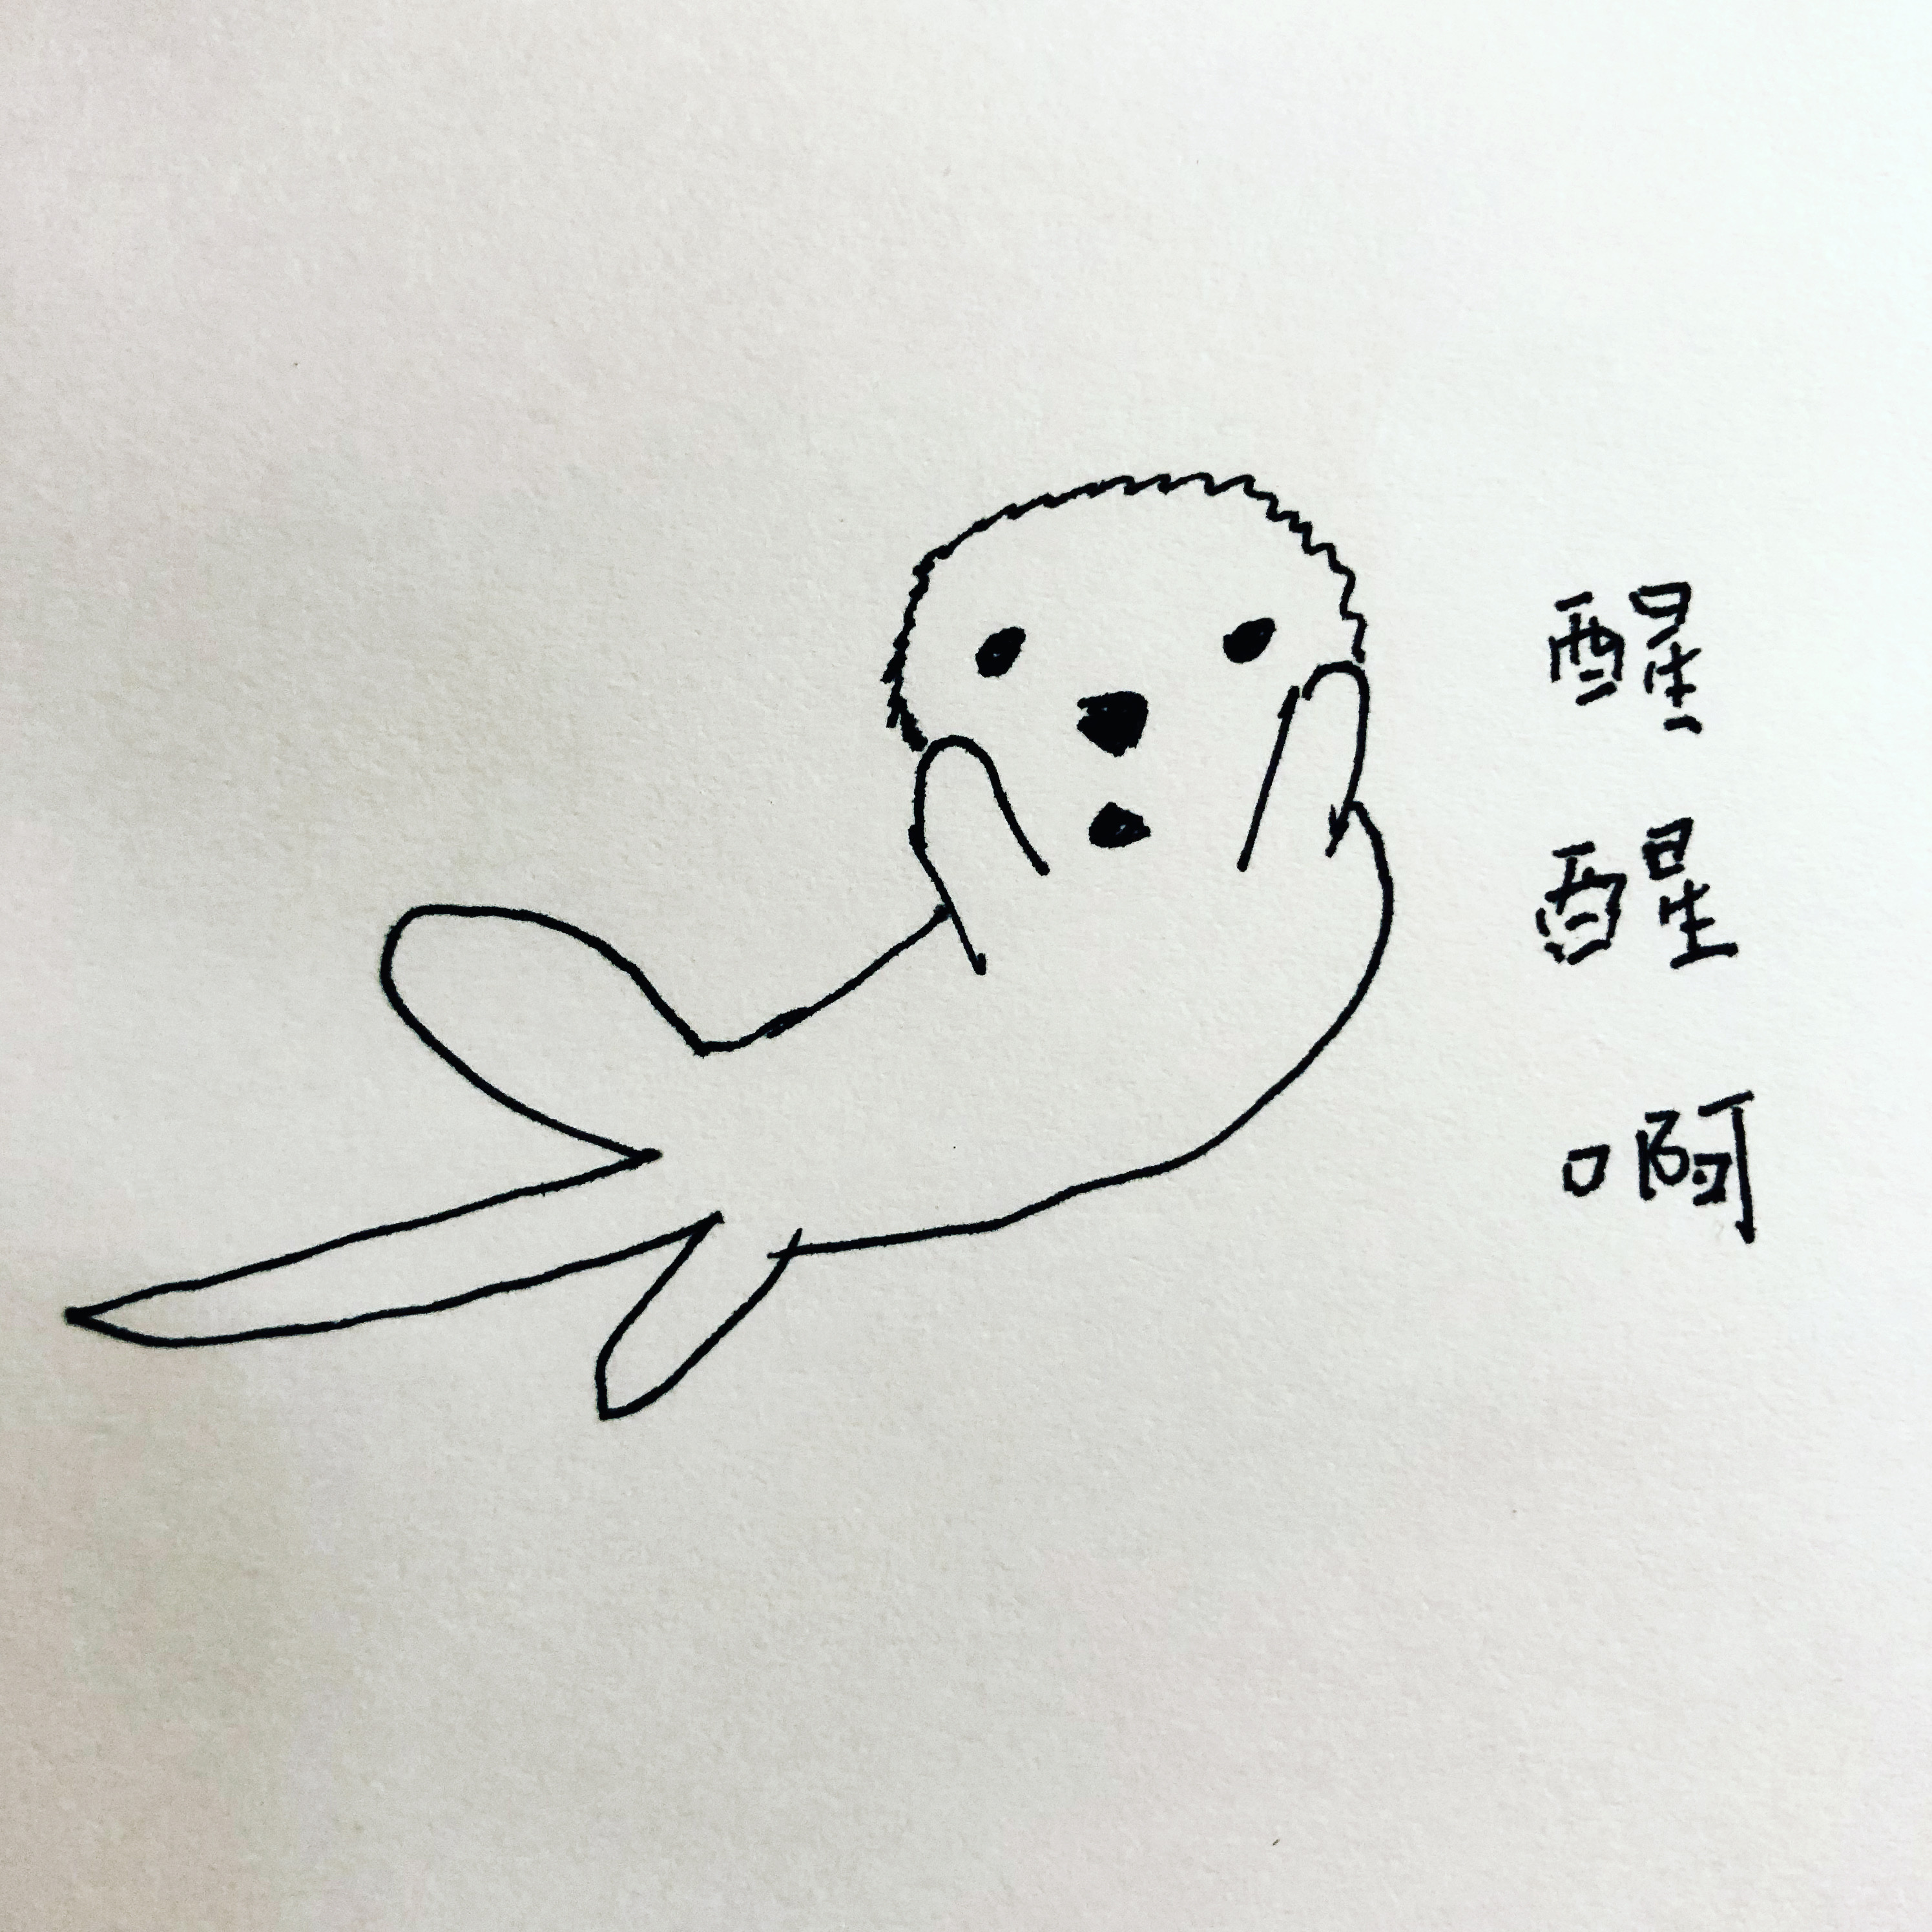 醒醒啊